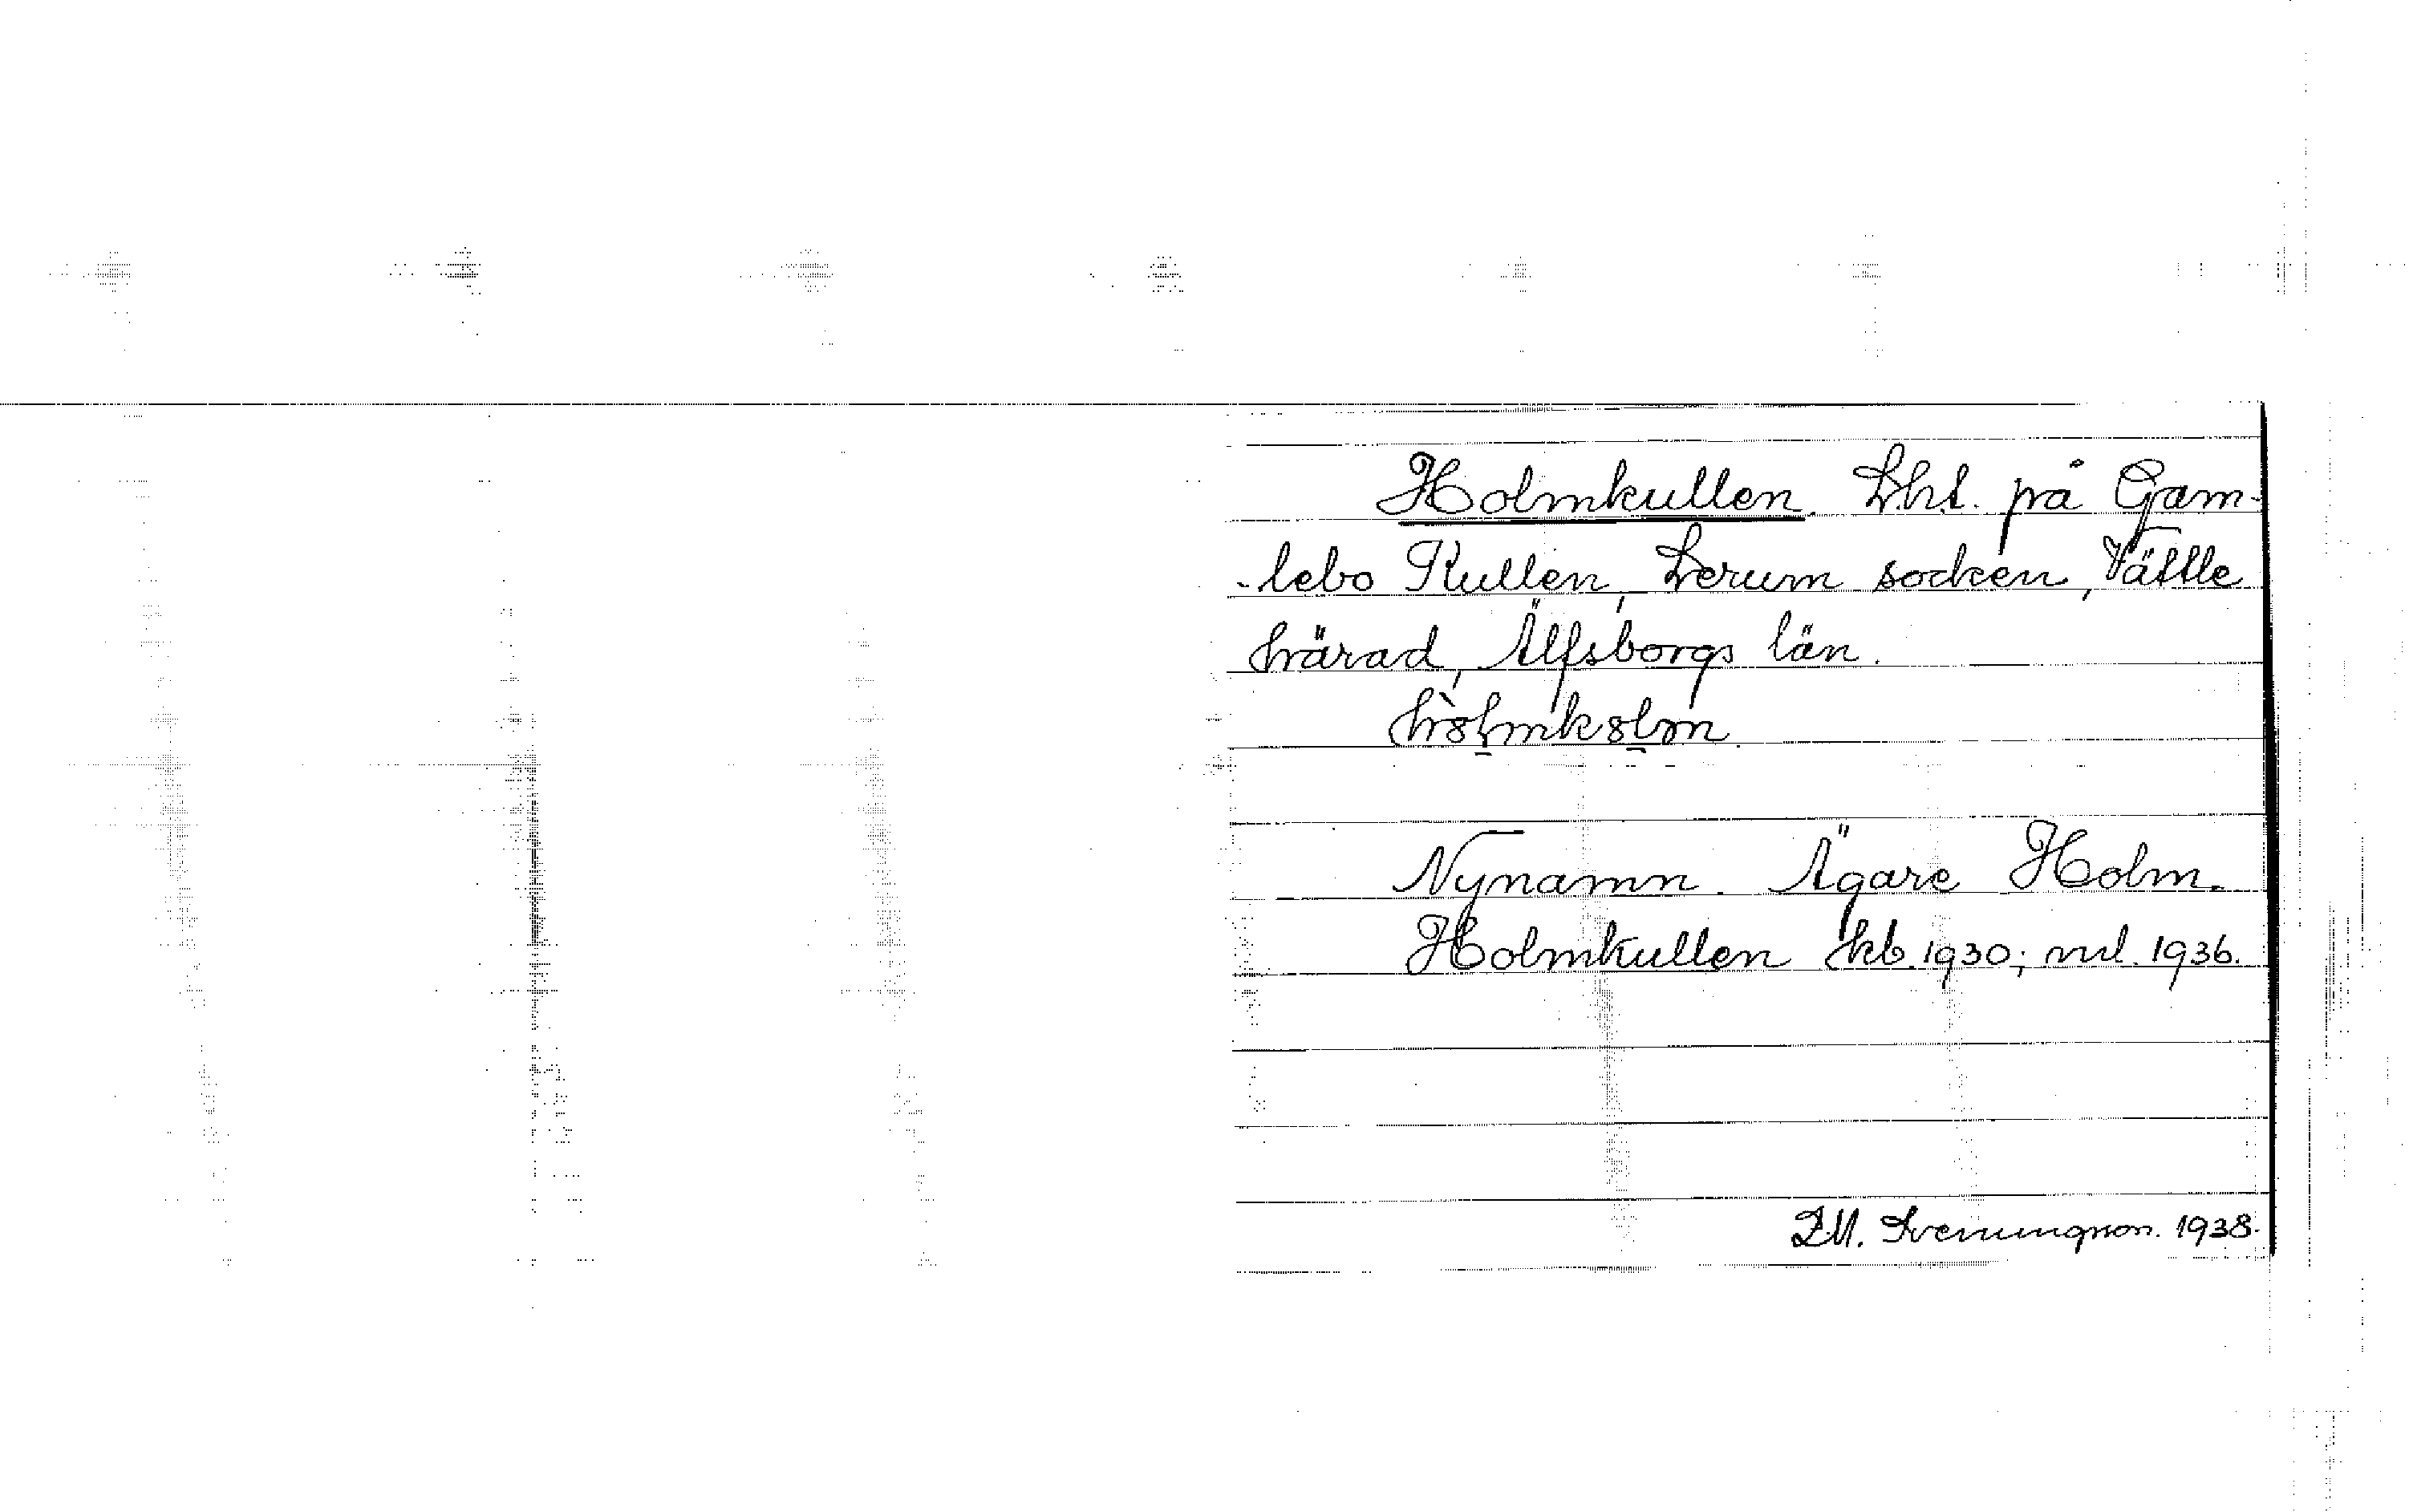 Holmkullen. Lht. på Gam-
-lebo Kullen, Lerum socken, Vättle
härad, Älfsborgs län.
Nynamn. Ägare Holm.
Holmkullen kb. 1930; ml. 1936.
1938.